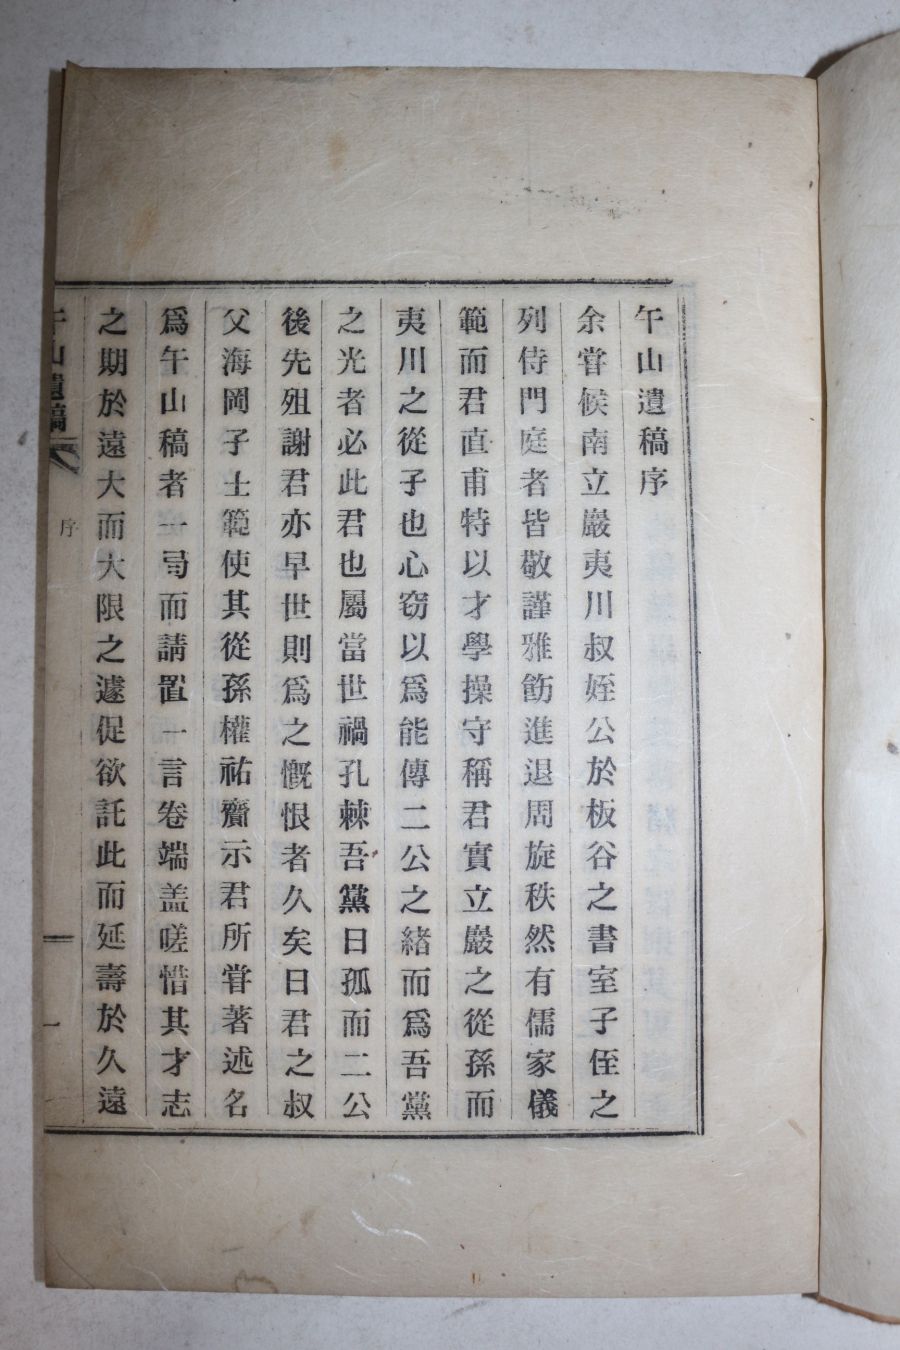 午山遺稿序
余甞候南立巖夷川叔姪公於板谷之書室子侄之
列侍門庭者皆敬謹雅飭進退周旋秩然有儒家儀
範而君直甫特以才學操守稱君實立巖之從孫而
夷川之從子也心窃以爲能傳二公之緖而爲吾黨
之光者必此君也屬當世禍孔棘吾黨日孤而二公
後先殂謝君亦早世則爲之慨恨者久矣日君之叔
父海岡子士範使其從孫權祐齎示君所甞著述名
爲午山稿者一𢎥而請置一言卷端盖嗟惜其才志
之期於遠大而大限之遽促欲託此而延壽於久遠
午山遺稿
序
一